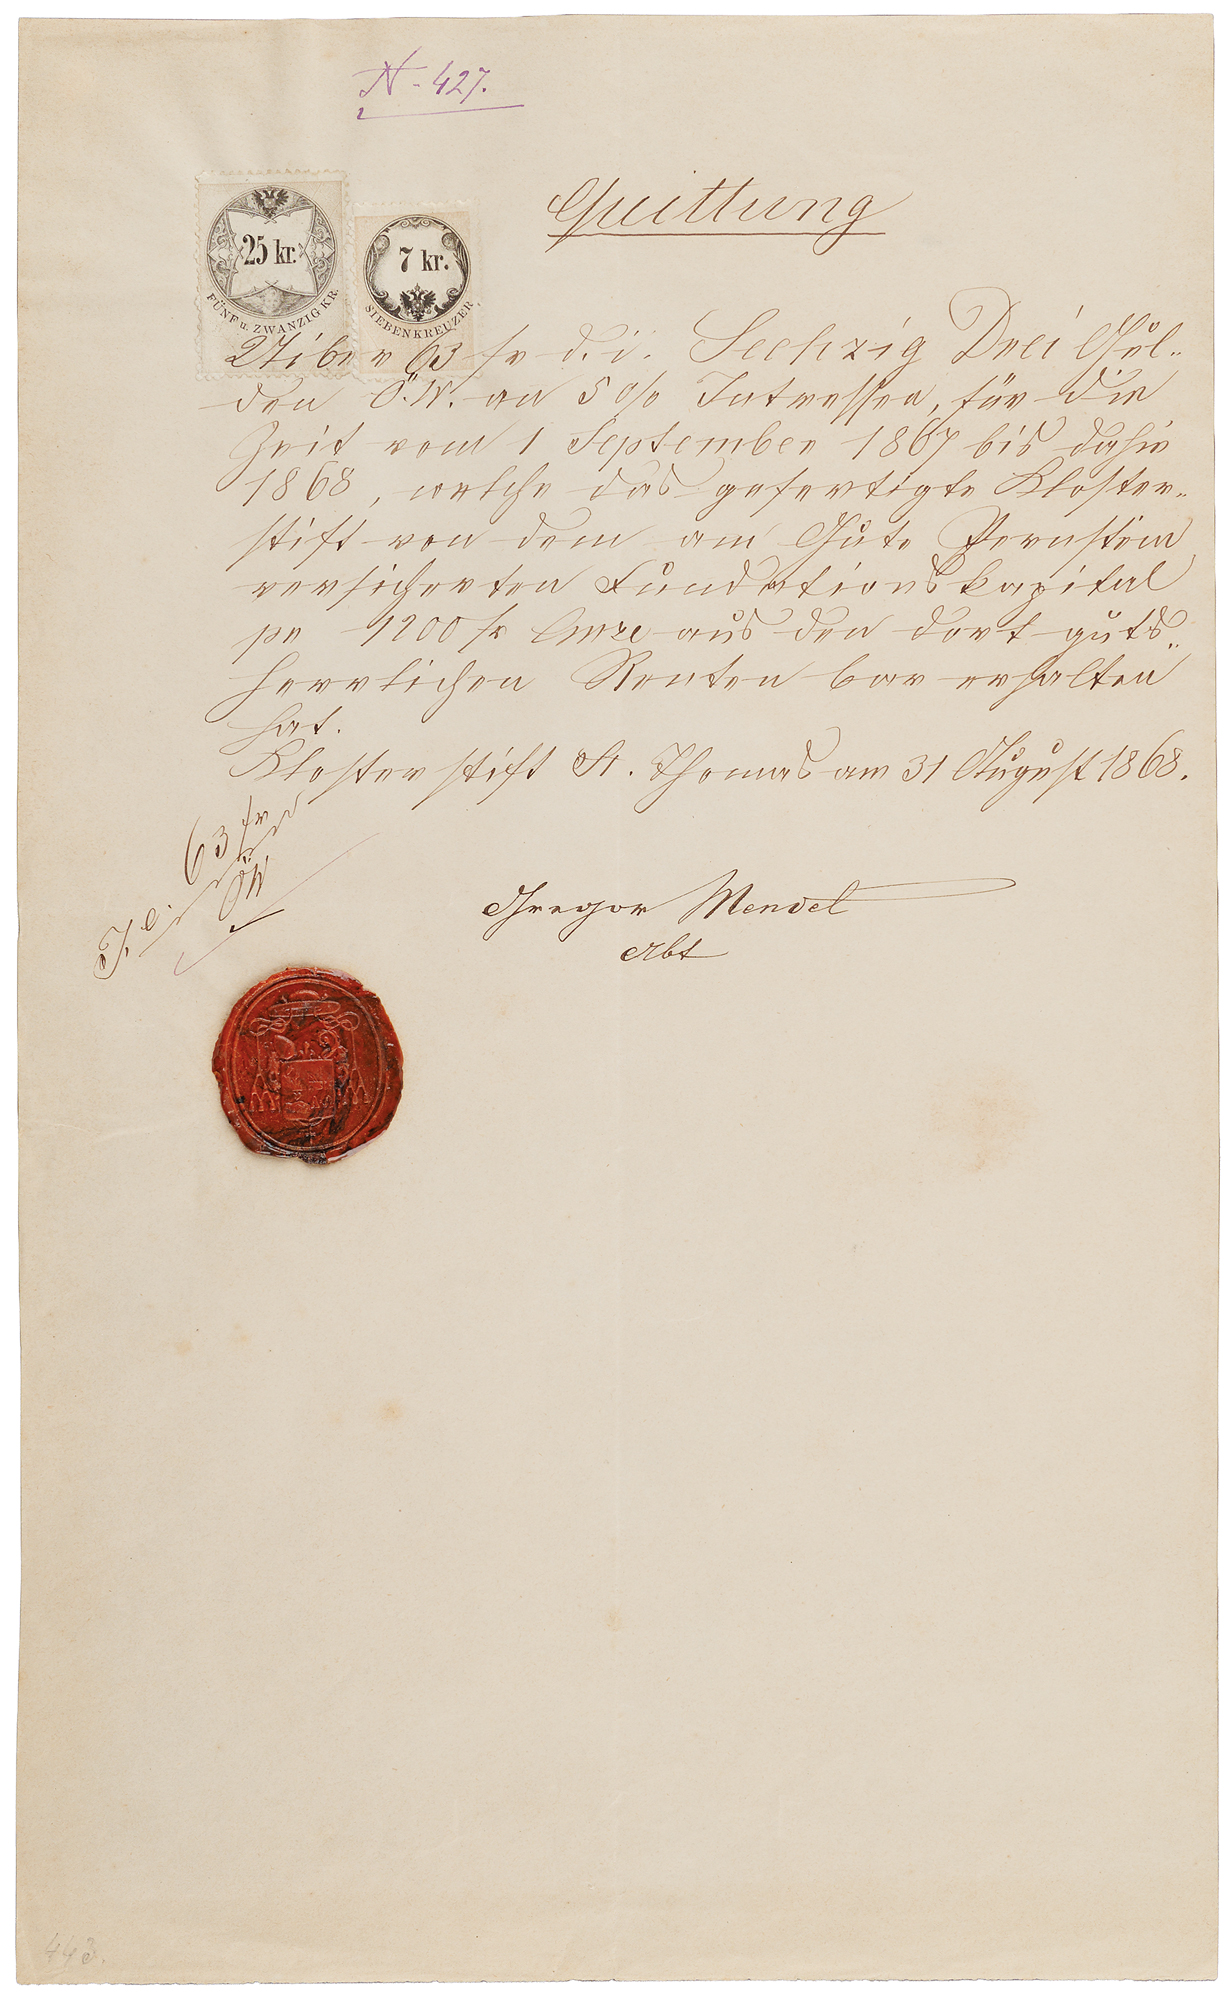 N- 427.
Quittung
25 kr.
FÜNF u. ZWANZIG KR.
7 kr.
SIEBENKREUZER
Uiber 63 fr d. i. Sechzig Drei Gul-
den Ö.W. an 5 0/0 Intressen, für die
Zeit vom 1 September 1867 bis dahin
1868, welche das gefertigte Kloster-
stift von dem am Gute Pernstein
versicherten Fundationskapital
pr 1200 fr aus den dort guts-
herrlichen Renten bar erhalten
hat.
Klosterstift St. Thomas am 31 August 1868.
63 fr
ÖW
Gregor Mendel
Abt
443.